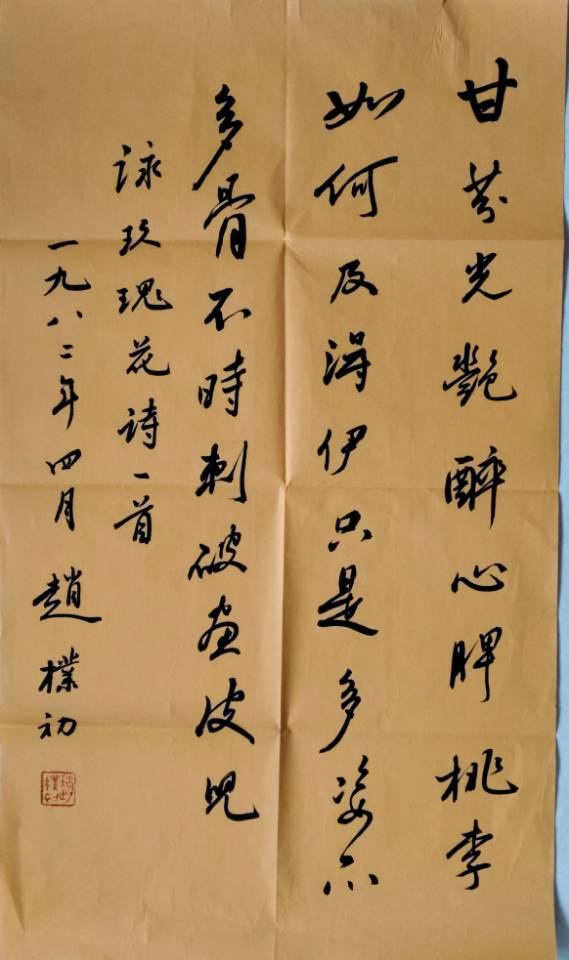 甘芬光艷醉心脾桃李
如何及得伊只是多姿不
多骨不時刺破畫皮兒
詠玫瑰花詩一首
一九八二年四月 趙樸初